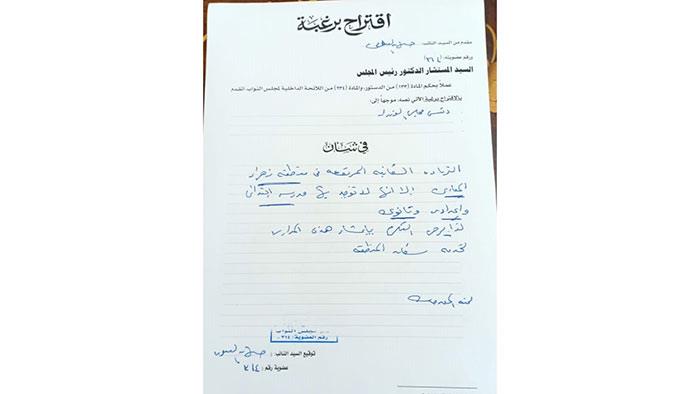 اقتراح برغبة
مقدم من السيد النائب:
ورقم عضويته: (٣١٤)
السيد المستشار الدكتور رئيس المجلس
عملاً بحكم المادة (١٣٣) من الدستور، والمادة (٢٣٤) من اللائحة الداخلية لمجلس النواب، أتقدم
بالاقتراح برغبة الآتي نصه، موجهاً إلى:
رئيس مجلس الوزراء
في شأن
الزيادة السكانية المرتفعة في منطقة زهراء
المعادي إلا انها لا توجد بها مدرسة ابتدائي
واعدادي وثانوي
لذا يرجى التكرم بإنشاء هذه المدارس
لخدمة سكان المنطقة
مجلس النواب
رقم العضوية: ٣١٤
توقيع السيد النائب:
عضوية رقم: ٣١٤